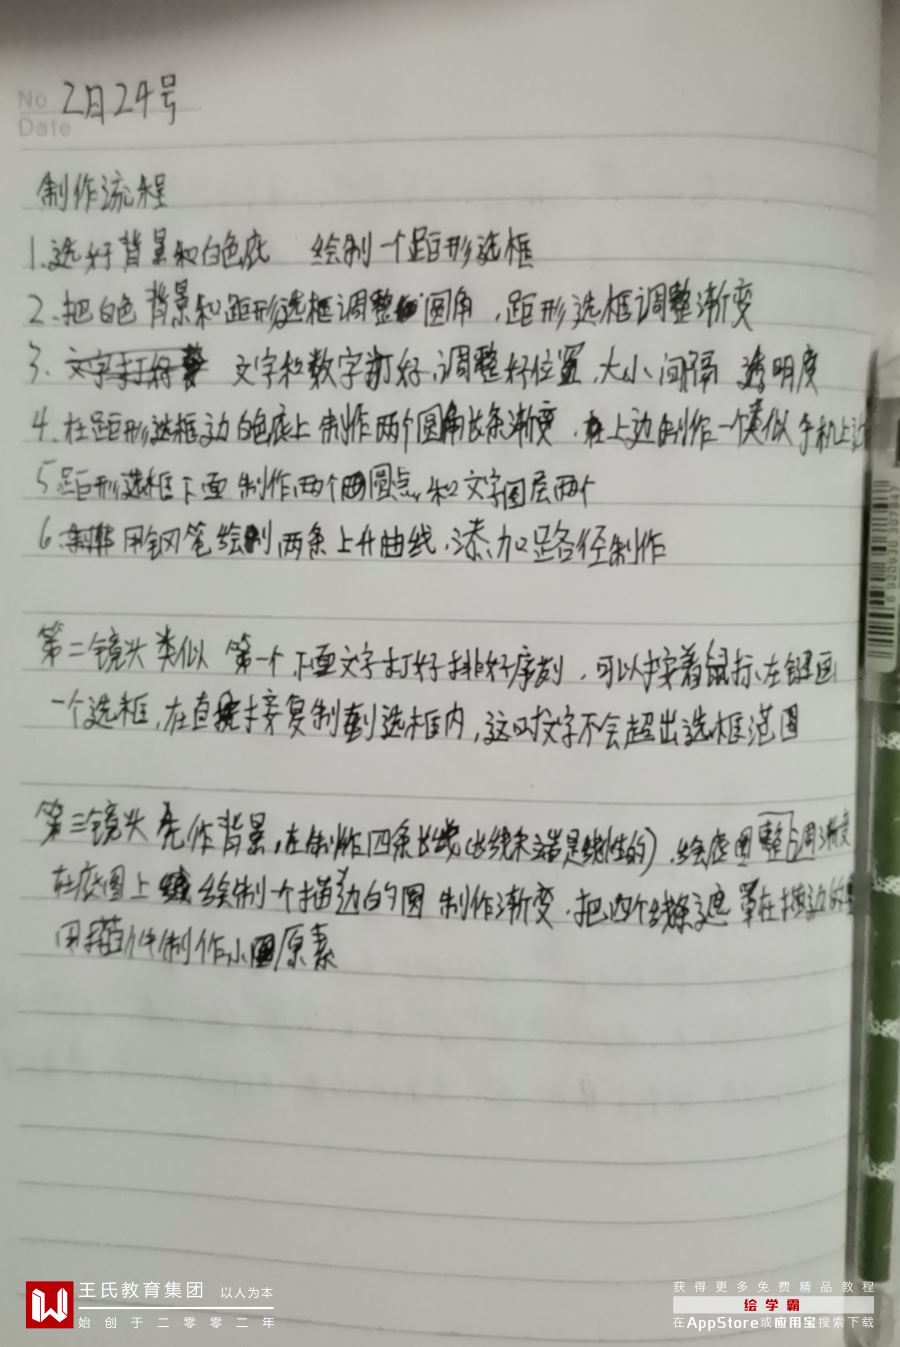 No 2月24号
Date
制作流程
1.选好背景和白色底 绘制一个距形选框
2.把白色背景和距形选框调整圆角,距形选框调整渐变
3. 文字和数字打好,调整好位置、大小、间隔 透明度
4.在距形选框边白色底上制作两个圆角长条渐变,在上边制作一个类似手机上边
5 距形选框下面制作两个圆点,和文字图层两个
6. 用钢笔绘制两条上升曲线,添加路径制作
第二镜头 类似 第一个 下面文字打好排好序列,可以按着鼠标左键画
一个选框,在直接复制到选框内,这时文字不会超出选框范围
第三镜头 先作背景,在制作四条长线(长线末端是线性的),绘底图 渐变
在底图上 绘制一个描边的圆 制作渐变,把四个线条遮罩在描边的
用插件制作小圆原素
王氏教育集团 以人为本
始创于二零零二年
获得更多免费精品教程
绘学霸
在AppStore或应用宝搜索下载
6 920930 307847